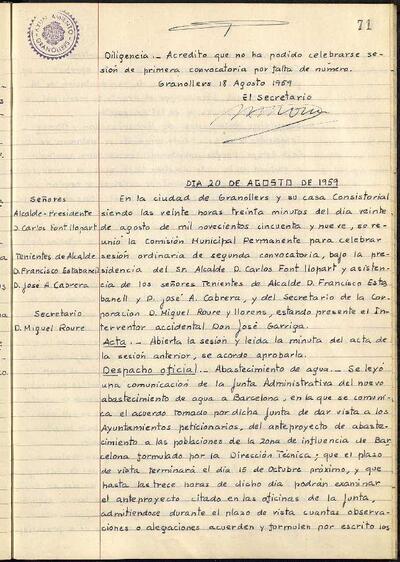 71
AYUNTAMIENTO
GRANOLLERS
Diligencia._ Acredito que no ha podido celebrarse se-
sión de primera convocatoria por falta de número.
Granollers 18 Agosto 1959
El Secretario
DIA 20 DE AGOSTO DE 1959
Señores
Alcalde-Presidente
D. Carlos Font llopart
Tenientes de Alcalde
D. Francisco Estabanell
D. José A. Cabrera
Secretario
D. Miguel Roure
En la ciudad de Granollers y su casa Consistorial
siendo las veinte horas treinta minutos del dia veinte
de agosto de mil novecientos cincuenta y nueve, se re-
unió la Comisión Municipal Permanente para celebrar
sesión ordinaria de segunda convocatoria, bajo la pre-
sidencia del Sr. Alcalde D. Carlos Font llopart y asisten-
cia de los señores Tenientes de Alcalde D. Francisco Esta-
banell y D. José A. Cabrera, y del Secretario de la Cor-
poracion D. Miguel Roure y llorens, estando presente el In-
terventor accidental Don José Garriga.
Acta._ Abierta la sesión y leida la minuta del acta de
la sesión anterior, se acordo aprobarla.
Despacho oficial._ Abastecimiento de agua._ Se leyó
una comunicación de la Junta Administrativa del nuevo
abastecimiento de agua a Barcelona, en la que se comuni-
ca el acuerdo tomado por dicha Junta de dar vista a los
Ayuntamientos peticionarios, del anteproyecto de abaste-
cimiento a las poblaciones de la zona de influencia de Bar-
celona formulado por la Dirección Técnica; que el plazo
de vista terminará el dia 15 de Octubre próximo, y que
hasta las trece horas de dicho dia podrán examinar
el anteproyecto citado en las oficinas de la Junta,
admitiendose durante el plazo de vista cuantas observa-
ciones o alegaciones acuerden y formulen por escrito los